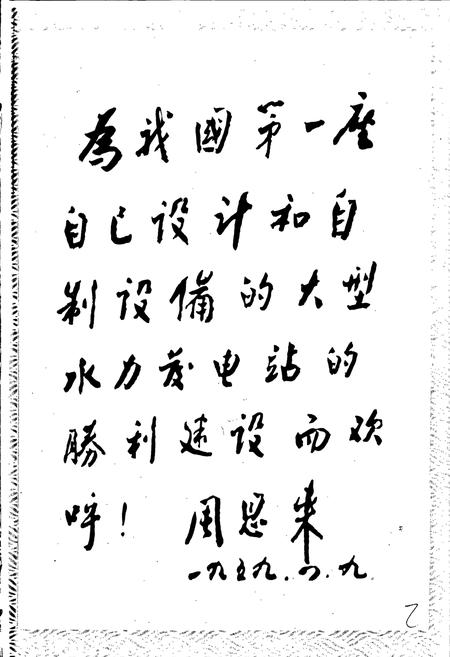 為我國第一座
自己设计和自
制设備的大型
水力发电站的
勝利建设而欢
呼! 周恩来
一九五九.四.九.